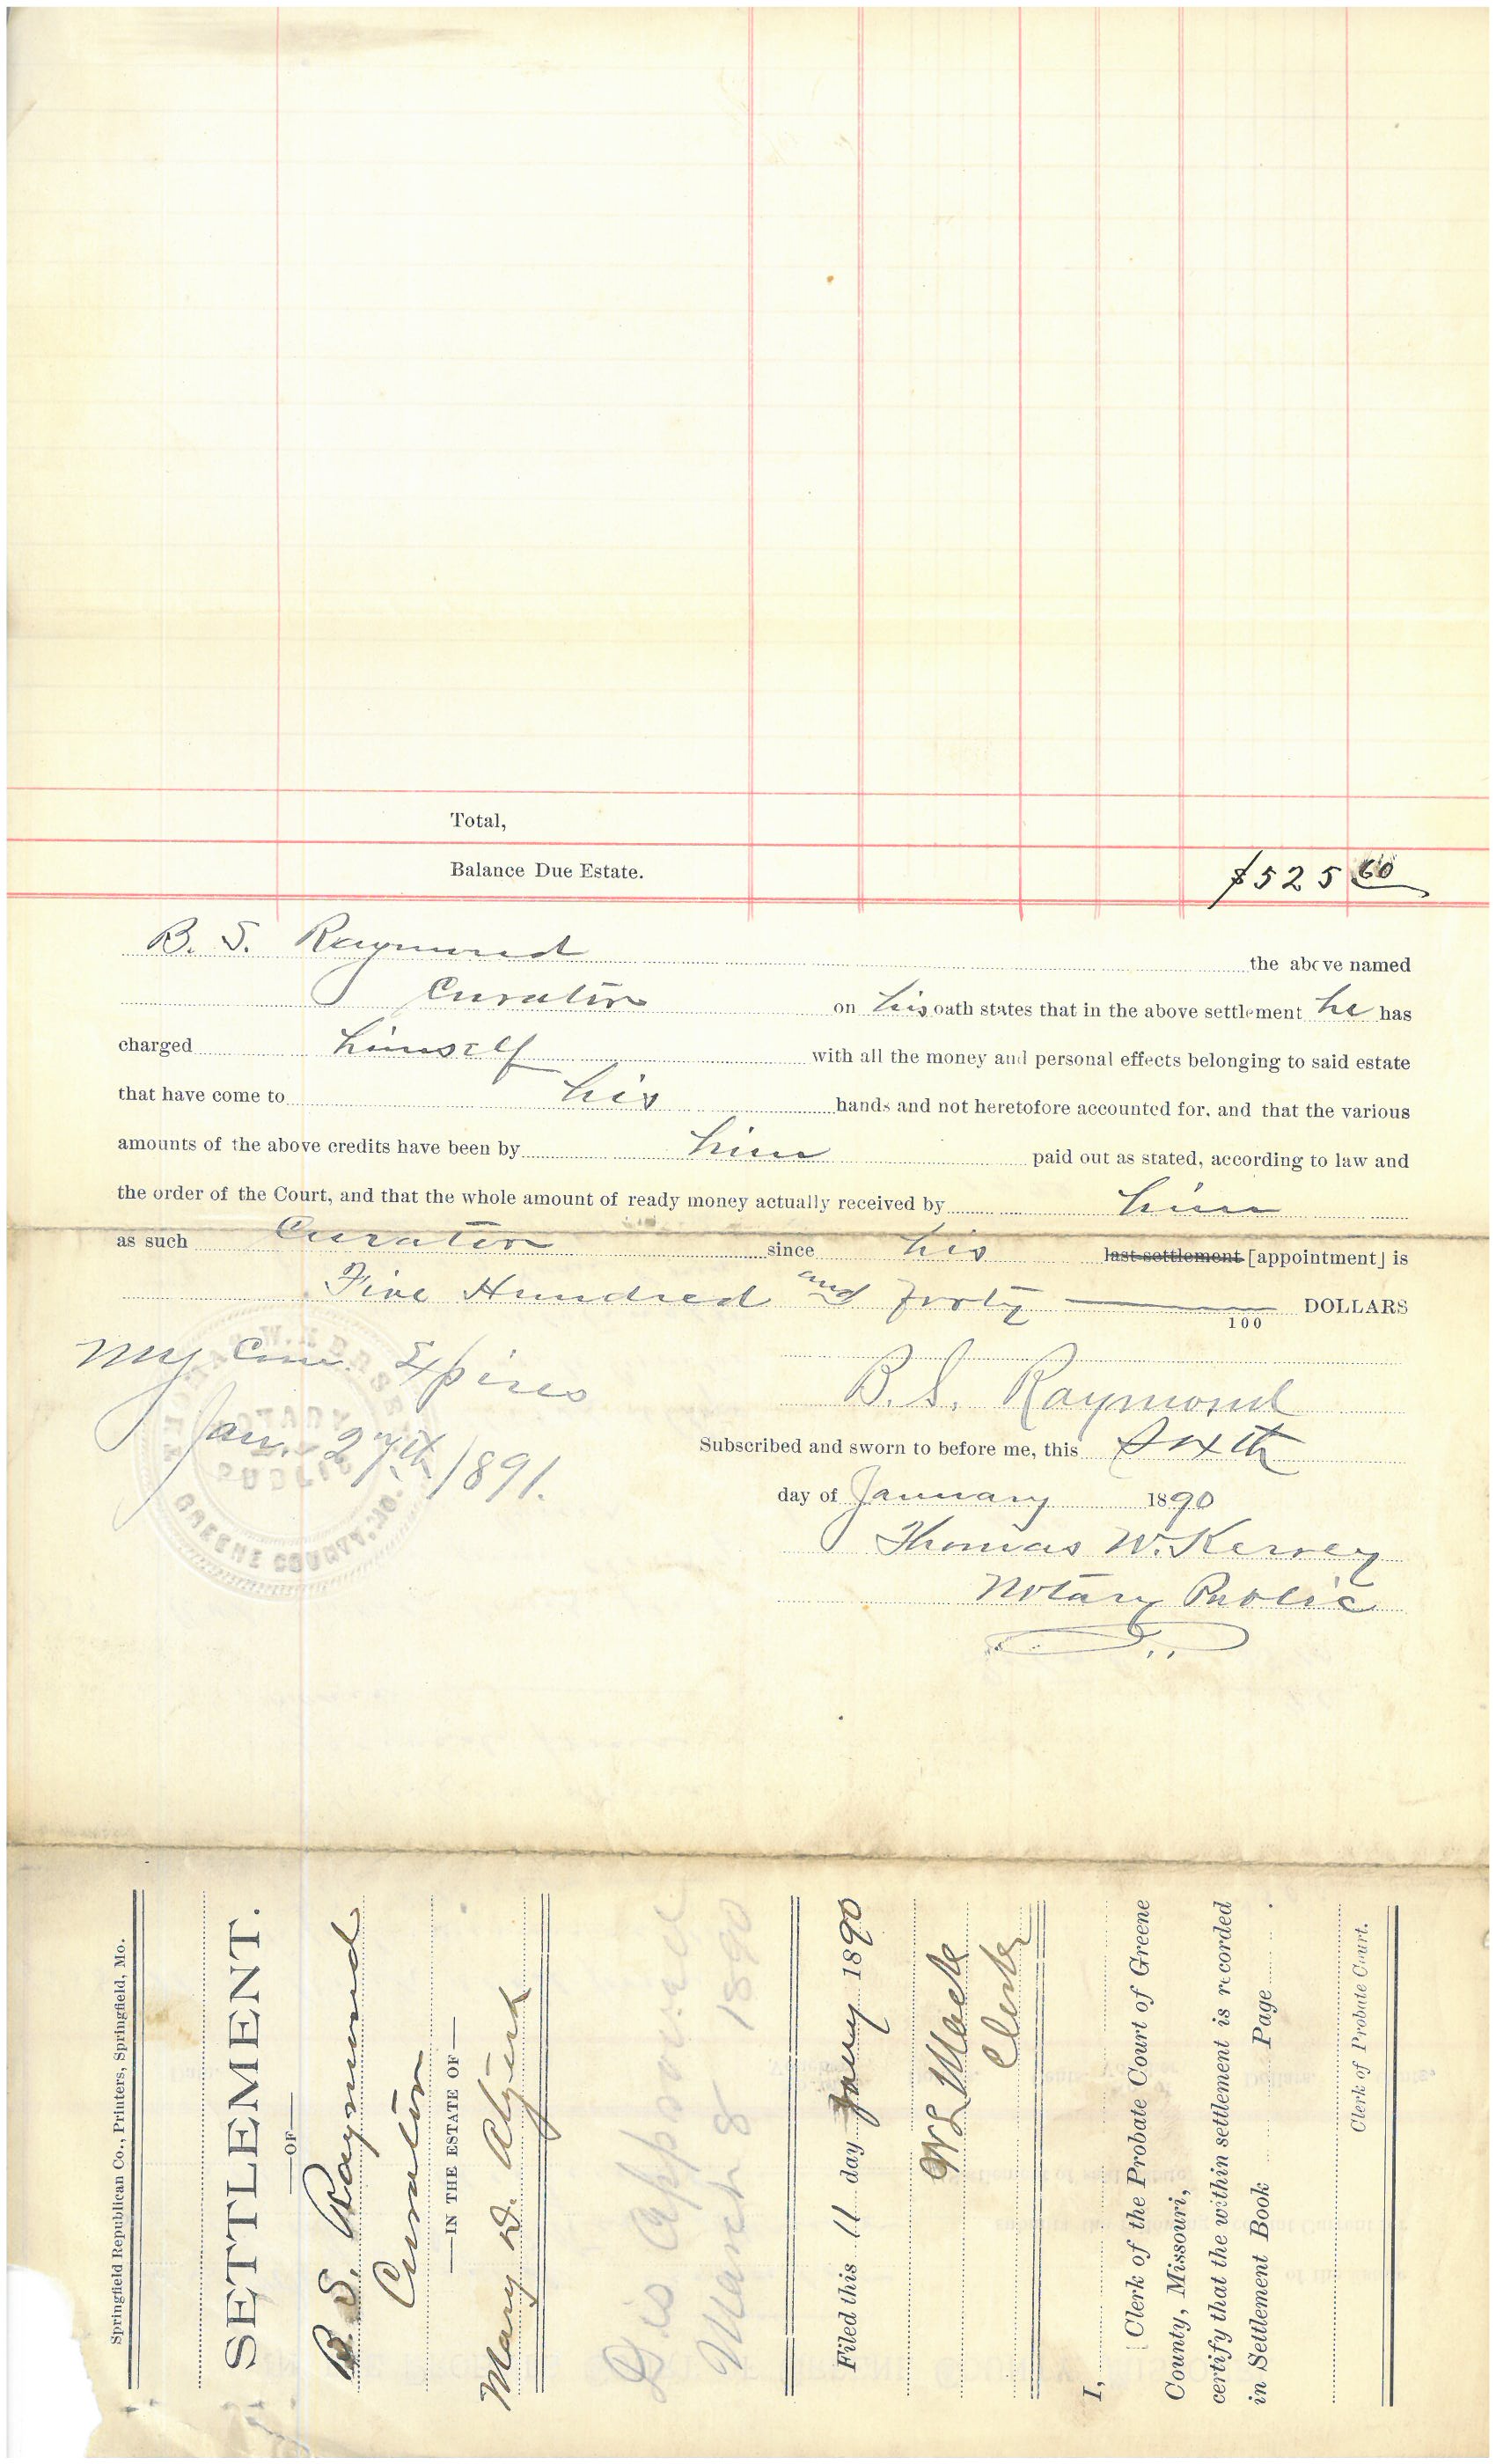 Total,
Balance Due Estate. $525 60
B. S. Raymond the above named
Curator on his oath states that in the above settlement he has
charged himself with all the money and personal effects belonging to said estate
that have come to his hands and not heretofore accounted for, and that the various
amounts of the above credits have been by him paid out as stated, according to law and
the order of the Court, and that the whole amount of ready money actually received by him
as such Curator since his last settlement [appointment] is
Five Hundred and Forty 100 DOLLARS
My Com. Expires
Jan. 27th 1891.
NOTARY
PUBLIC
GREENE COUNTY, MO.
B. S. Raymond
Subscribed and sworn to before me, this Sixth
day of January 1890
Thomas W. Kersey
Notary Public
Springfield Republican Co., Printers, Springfield, Mo.
SETTLEMENT.
—OF—
B. S. Raymond
Curator
—IN THE ESTATE OF—
Mary D.
Dis Approved
March 8 1890
Filed this 11 day Jany 1890
Clerk
I,
Clerk of the Probate Court of Greene
County, Missouri,
certify that the within settlement is recorded
in Settlement Book Page .
Clerk of Probate Court.